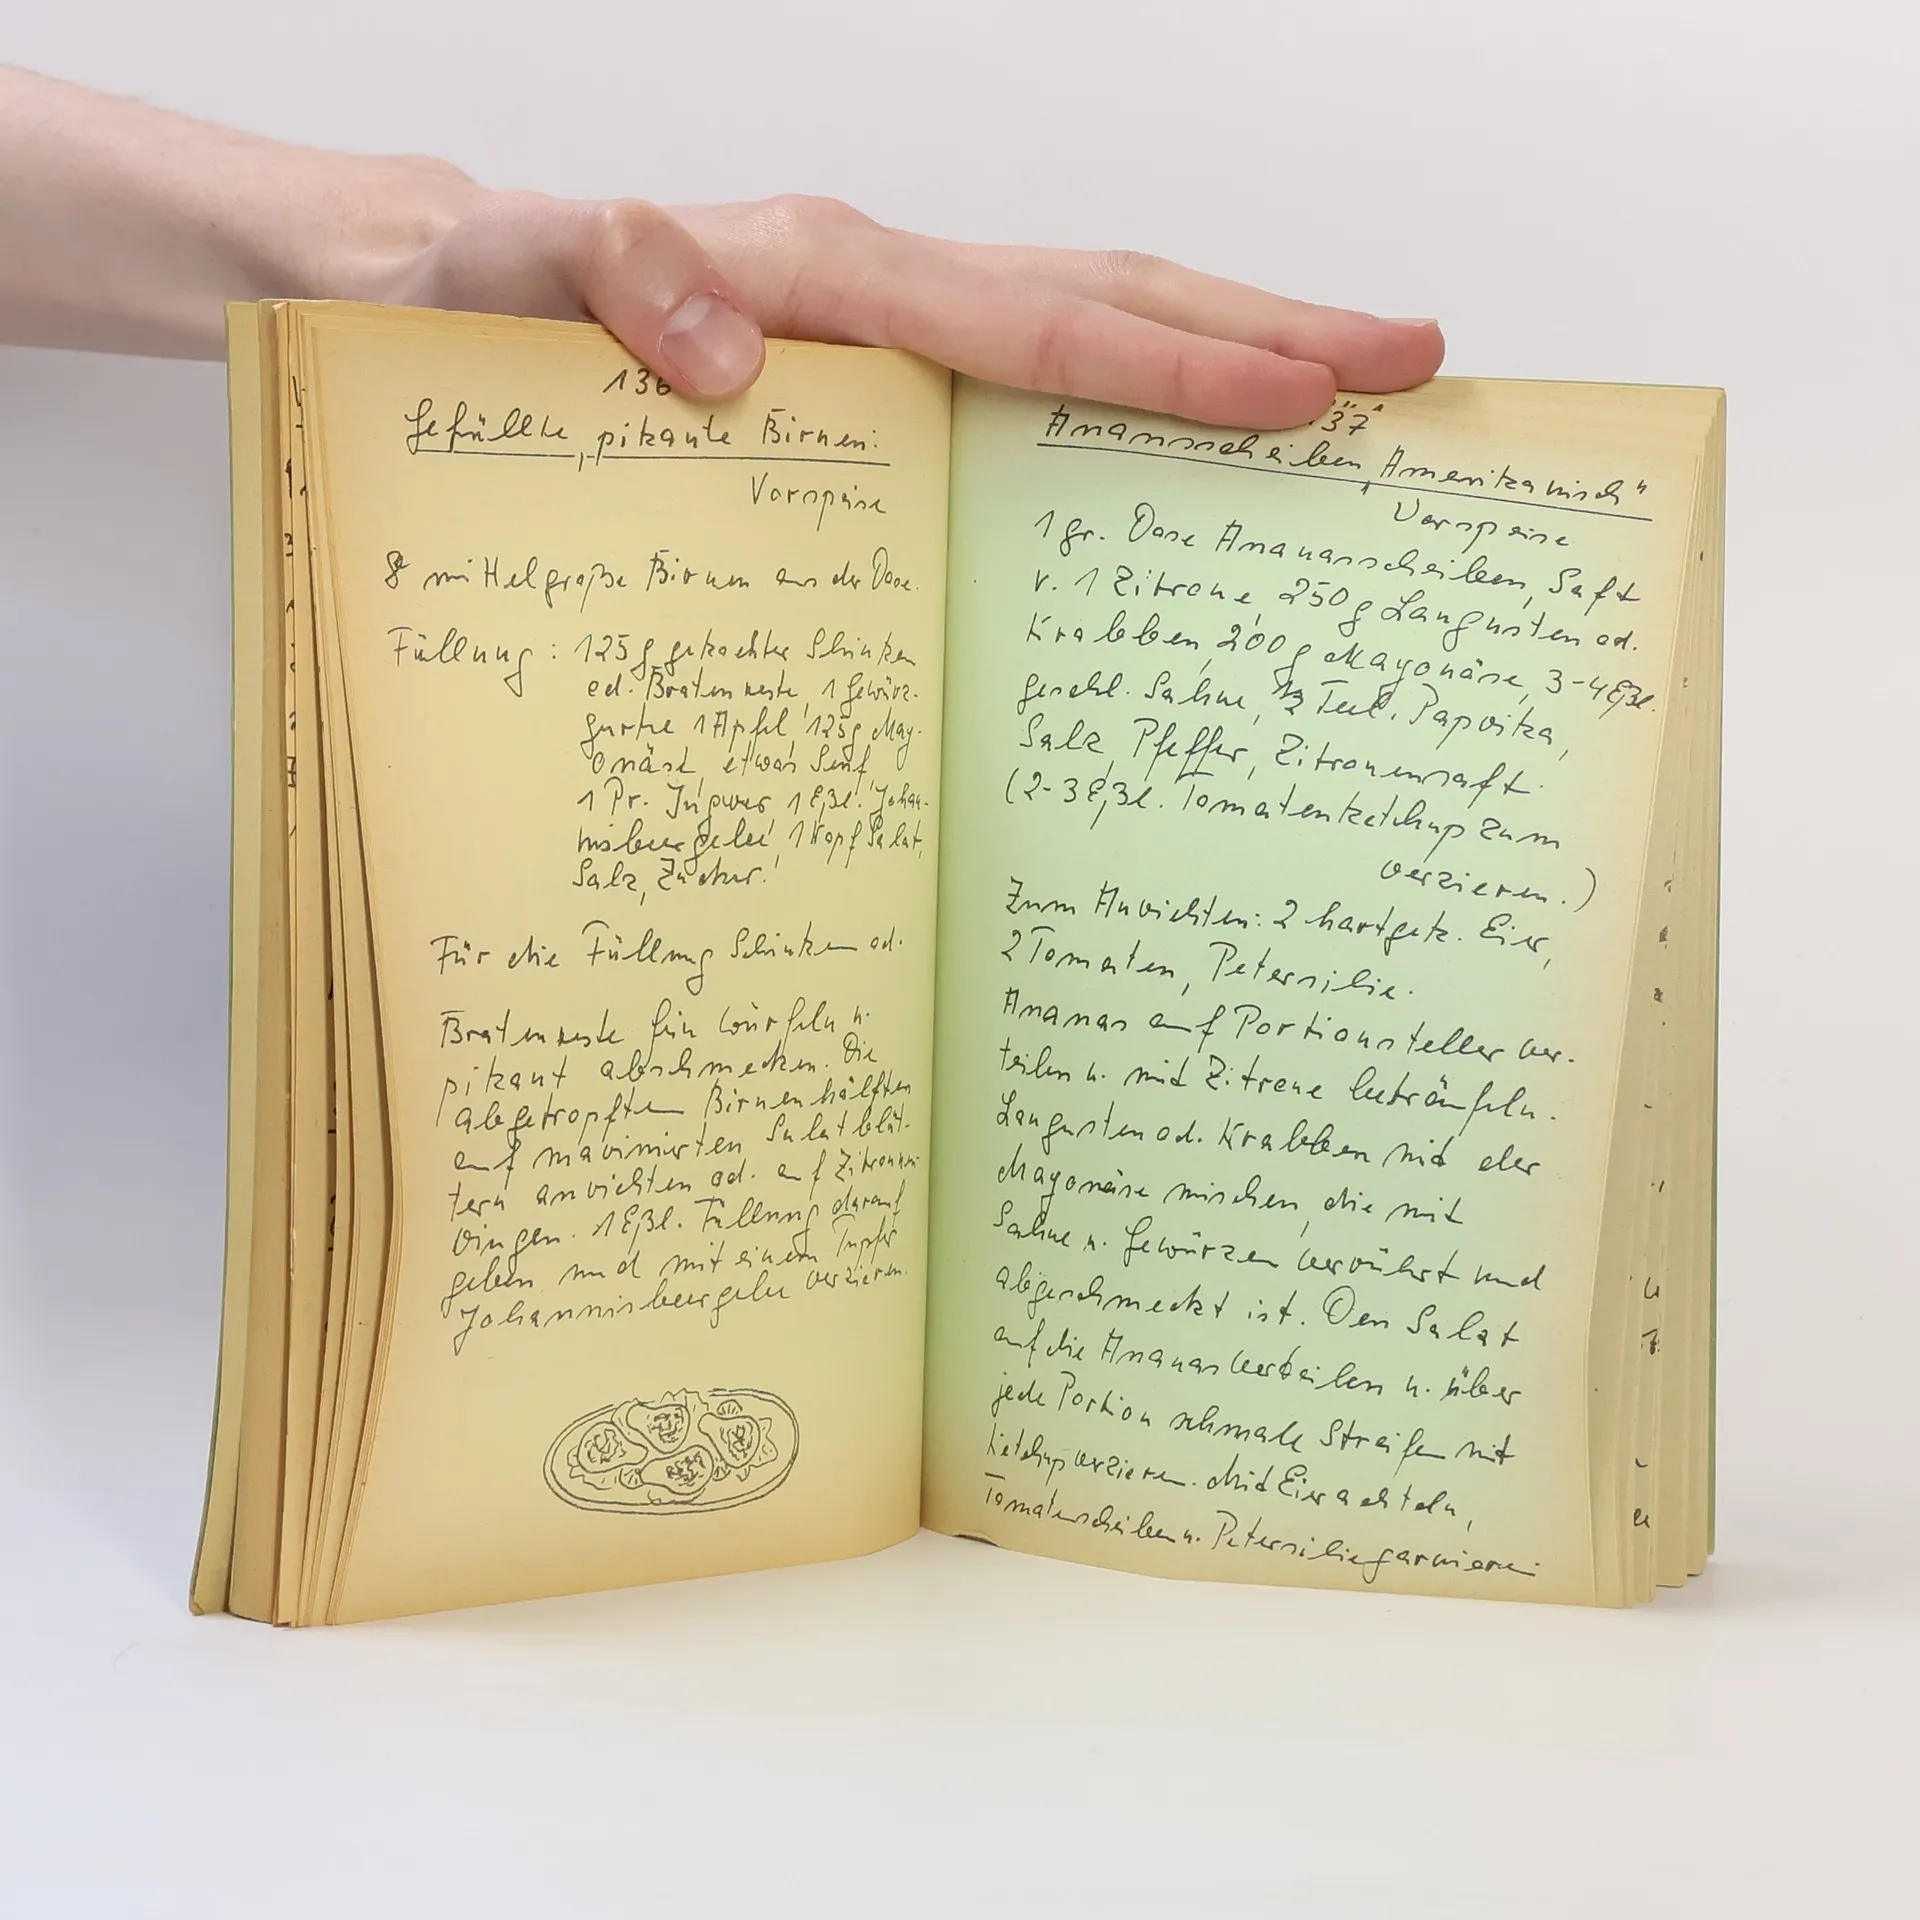 136
Gefüllte, pikante Birnen:
Vorspeise
8 mittelgroße Birnen aus der Dose.
Füllung: 125 g gekochter Schinken
od. Bratenreste, 1 Gewürz-
gurke, 1 Apfel, 125 g May-
onäse, etwas Senf,
1 Pr. Ingwer, 1 Eßl. Johan-
nisbeergelee, 1 Kopf Salat,
Salz, Zucker.
Für die Füllung Schinken od.
Bratenreste fein würfeln u.
pikant abschmecken. Die
abgetropften Birnenhälften
auf marinierten Salatblät-
tern anrichten od. auf Zitronen-
ringen. 1 Eßl. Füllung darauf
geben und mit einem Tupfer
Johannisbeergelee verzieren.
137
Ananasscheiben „Amerikanisch"
Vorspeise
1 gr. Dose Ananasscheiben, Saft
v. 1 Zitrone, 250 g Langusten od.
Krabben, 200 g Mayonäse, 3-4 Eßl.
geschl. Sahne, Teel. Paprika,
Salz, Pfeffer, Zitronensaft.
(2-3 Eßl. Tomatenketchup zum
verzieren.)
Zum Anrichten: 2 hartgek. Eier,
2 Tomaten, Petersilie.
Ananas auf Portionsteller ver-
teilen u. mit Zitrone beträufeln.
Langusten od. Krabben mit der
Mayonäse mischen, die mit
Sahne u. Gewürzen verrührt und
abgeschmeckt ist. Den Salat
auf die Ananas verteilen u. über
jede Portion schmale Streifen mit
Ketchup verzieren. Mit Eierachteln,
Tomatenscheiben u. Petersilie garnieren.